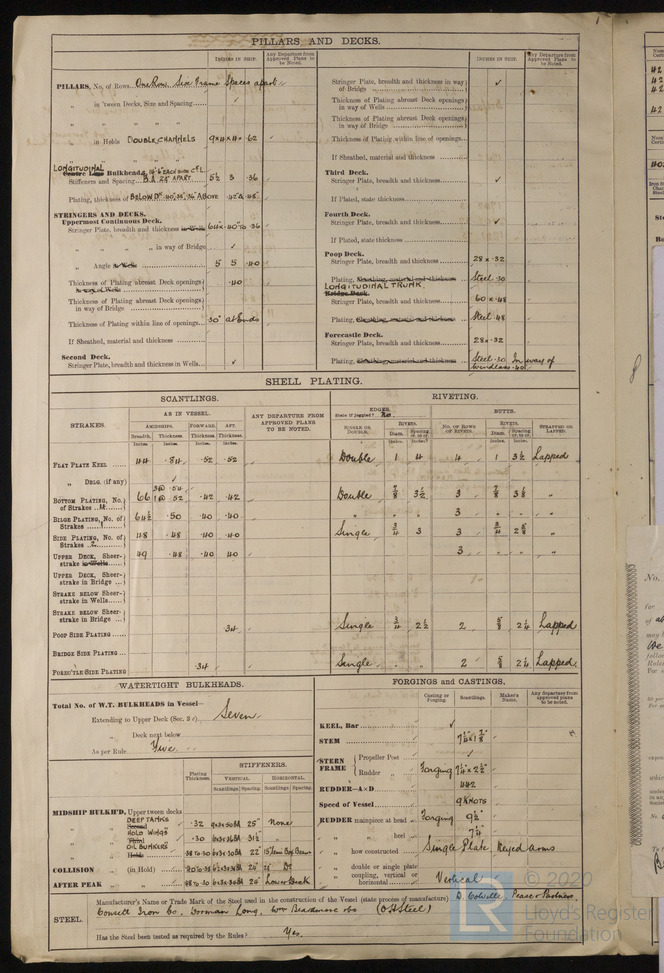 PILLARS AND DECKS.
INCHES IN SHIP.
Any Departure from Approved Plans to be Noted.
PILLARS, No. of Rows One Row Six Frame Spaces apart
„ in 'tween Decks, Size and Spacing
„ in Holds DOUBLE CHANNELS
LONGITUDINAL
Centre Line Bulkhead
Stiffeners and Spacing 5½ 3 .36
Plating, thickness of
STRINGERS AND DECKS.
Uppermost Continuous Deck.
Stringer Plate, breadth and thickness in Wells
„ „ „ in way of Bridge ✓
„ Angle in Wells 5 5 .40
Thickness of Plating abreast Deck openings in way of Wells .40
Thickness of Plating abreast Deck openings in way of Bridge
Thickness of Plating within line of openings .30" at Ends
If Sheathed, material and thickness
Second Deck.
Stringer Plate, breadth and thickness in Wells ✓
INCHES IN SHIP.
Any Departure from Approved Plans to be Noted.
Stringer Plate, breadth and thickness in way of Bridge ✓
Thickness of Plating abreast Deck openings in way of Wells
Thickness of Plating abreast Deck openings in way of Bridge
Thickness of Plating within line of openings
If Sheathed, material and thickness
Third Deck.
Stringer Plate, breadth and thickness ✓
If Plated, state thickness
Fourth Deck.
Stringer Plate, breadth and thickness ✓
If Plated, state thickness
Poop Deck.
Stringer Plate, breadth and thickness 28 × .32
Plating, Sheathing, material and thickness Steel .30
LONGITUDINAL TRUNK.
Bridge Deck.
Stringer Plate, breadth and thickness 60 × .48
Plating, Sheathing, material and thickness Steel .48
Forecastle Deck.
Stringer Plate, breadth and thickness 28 × .32
Plating, Sheathing, material and thickness Steel .30 In way of
windlass .40
SHELL PLATING.
SCANTLINGS.
RIVETING.
STRAKES.
AS IN VESSEL.
AMIDSHIPS. FORWARD. AFT.
Breadth. Thickness Thickness Thickness
Inches. Inches. Inches. Inches.
ANY DEPARTURE FROM APPROVED PLANS TO BE NOTED.
EDGES.
State if joggled? No
SINGLE OR DOUBLE.
RIVETS.
Diam. Spacing
BUTTS.
NO. OF ROWS OF RIVETS.
RIVETS.
Diam. Spacing
STRAPPED OR LAPPED.
FLAT PLATE KEEL 44 .84 .52 .52 Double 1 4 4 1 3½ Lapped
„ DBLG. (if any) ✓
BOTTOM PLATING, No. of Strakes 4 66 .42 .42 Double ⅞ 3½ 3 ⅞ 3⅛ „
BILGE PLATING, No. of Strakes 1 64½ .50 .40 .40 „ „ „ 3 „ „ „
SIDE PLATING, No. of Strakes 2 48 .48 .40 .40 Single ¾ 3 3 ¾ 2⅝ „
UPPER DECK, Sheerstrake in Wells 49 .48 .40 .40 3 „ „ „
UPPER DECK, Sheerstrake in Bridge
STRAKE BELOW SHEERstrake in Wells
STRAKE BELOW SHEERstrake in Bridge
POOP SIDE PLATING .34 Single ¾ 2½ 2 ⅝ 2¼ Lapped
BRIDGE SIDE PLATING
FORECTLE SIDE PLATING .34 Single „ „ 2 ⅝ 2¼ Lapped
WATERTIGHT BULKHEADS.
Total No. of W.T. BULKHEADS in Vessel—
Extending to Upper Deck (Sec. 3 c) Seven
„ Deck next below
As per Rule Five
Plating Thickness
STIFFENERS.
VERTICAL. HORIZONTAL.
Scantlings. Spacing. Scantlings. Spacing.
MIDSHIP BULKH'D, Upper tween decks
DEEP TANKS .32 25" None
HOLD WINGS .30 31½
OIL BUNKERS 22"
COLLISION (in Hold) 24"
AFTER PEAK 24"
FORGINGS and CASTINGS.
Casting or Forging. Scantlings. Maker's Name. Any departure from approved plans to be noted.
KEEL, Bar ✓
STEM
STERN FRAME
Propeller Post ✓
Rudder „ Forging 7¼ × 2½
RUDDER—A×D 442
Speed of Vessel 9½ KNOTS
RUDDER mainpiece at head Forging 9½"
„ „ heel 7¼
„ how constructed Single Plate Keyed arms
„ double or single plate
„ coupling, vertical or horizontal Vertical
STEEL.
Manufacturer's Name or Trade Mark of the Steel used in the construction of the Vessel (state process of manufacture) D. Colville, Pease & Partners,
Consett Iron Co, Dorman Long, Wm Beardmore &Co (OH Steel)
Has the Steel been tested as required by the Rules? Yes.
© 2020
LR
Lloyd's Register
Foundation